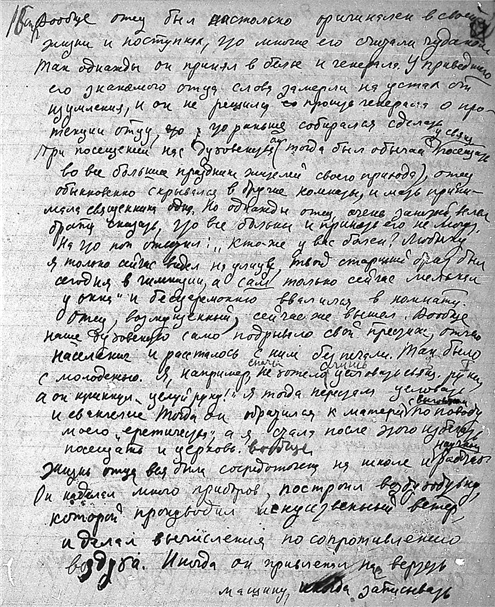 Вообще отец был настолько оригинален в своей
жизни и поступках, что многие его считали чудаком
Так однажды он принял в белье и генерала. У приведшего
его знакомого отца слова замерли на устах от
изумления, и он не решился просить генерала о про-
текции отцу, что раньше собирался сделать
При посещении нас духовенства (тогда был обычай у свящ. посещать
во все большие праздники жителей своего прихода), отец
обыкновенно скрывался в другие комнаты, и мать прини-
мала священника одна. Но однажды отец очень занятый велел
брату сказать, что все больны и принять его не могут.
На что поп ответил: "Кто же у вас болен? Любочку
я только сейчас видел на улице, твой старший брат был
сегодня в гимназии, а сам только сейчас мелькнул
у окна" и бесцеремонно ввалился в комнату.
Отец, возмущенный, сейчас же вышел. Вообще
наше духовенство само подрывало свой престиж, отчего
население и рассталось с ним без печали. Так было
с молодежью. Я, например, не хотела целовать руку
а он крикнул "целуй руку!" я тогда передам
и евангелие. Тогда он обратился к матери по поводу
моего "еретичества", а я стала после этого избегать
посещать и церковь вообще.
Жизнь отца вся была сосредоточена на школе и научных работах
Он наделал много приборов, построил воздуходувку,
которой производил искусственный ветер,
и делал вычисления по сопротивлению
воздуха. Иногда он привлекал нас вертеть
машину, иногда записывать